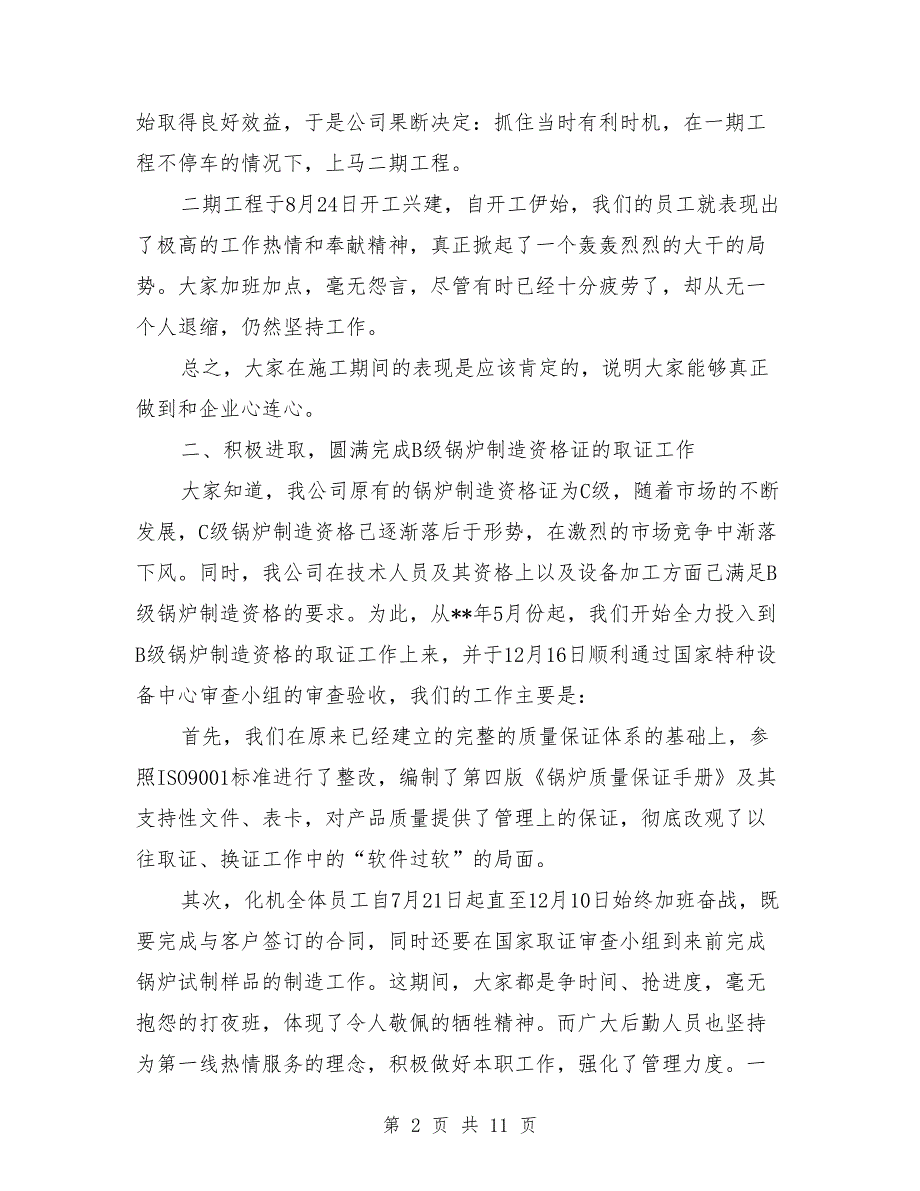 始取得良好效益，于是公司果断决定：抓住当时有利时机，在一期工
程不停车的情况下，上马二期工程。
二期工程于8月24日开工兴建，自开工伊始，我们的员工就表现出
了极高的工作热情和奉献精神，真正掀起了一个轰轰烈烈的大干的局
势。大家加班加点，毫无怨言，尽管有时已经十分疲劳了，却从无一
个人退缩，仍然坚持工作。
总之，大家在施工期间的表现是应该肯定的，说明大家能够真正
做到和企业心连心。
二、积极进取，圆满完成B级锅炉制造资格证的取证工作
大家知道，我公司原有的锅炉制造资格证为C级，随着市场的不断
发展，C级锅炉制造资格己逐渐落后于形势，在激烈的市场竞争中渐落
下风。同时，我公司在技术人员及其资格上以及设备加工方面己满足B
级锅炉制造资格的要求。为此，从**年5月份起，我们开始全力投入到
B级锅炉制造资格的取证工作上来，并于12月16日顺利通过国家特种设
备中心审查小组的审查验收，我们的工作主要是：
首先，我们在原来已经建立的完整的质量保证体系的基础上，参
照ISO9001标准进行了整改，编制了第四版《锅炉质量保证手册》及其
支持性文件、表卡，对产品质量提供了管理上的保证，彻底改观了以
往取证、换证工作中的“软件过软”的局面。
其次，化机全体员工自7月21日起直至12月10日始终加班奋战，既
要完成与客户签订的合同，同时还要在国家取证审查小组到来前完成
锅炉试制样品的制造工作。这期间，大家都是争时间、抢进度，毫无
抱怨的打夜班，体现了令人敬佩的牺牲精神。而广大后勤人员也坚持
为第一线热情服务的理念，积极做好本职工作，强化了管理力度。一
第 2 页 共 11 页